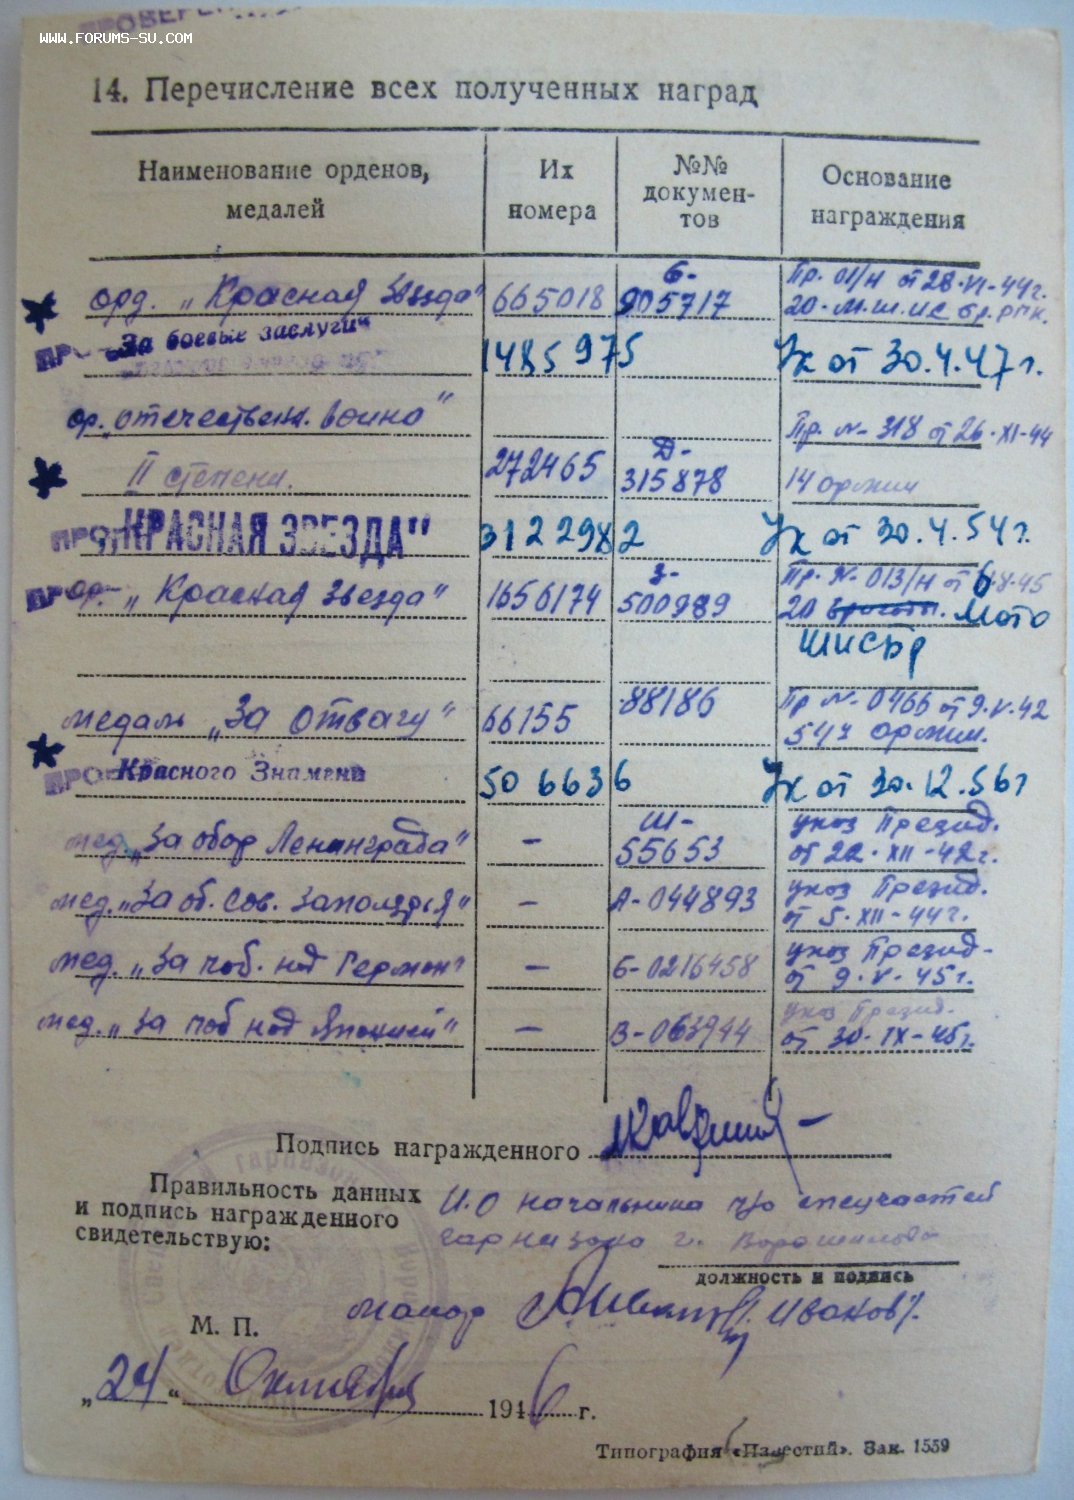 ПРОВЕРЕ
WWW.FORUMS-SU.COM
14. Перечисление всех полученных наград
Наименование орденов, медалей
Их номера
№№ докумен-тов
Основание награждения
орд. „Красная Звезда" 665018 Б-905717 Пр. 011/н от 28·VI-44г.
20-м.ш.ис бр. РГК.
„За боевые заслуги" 1485975 Ук от 30.4.47г.
ор. „отечествен. воина" Пр. №-318 от 26·XI-44
II степени. 272465 Д-315878 14 армии
„КРАСНАЯ ЗВЕЗДА" 3122982 Ук от 30.4.54г.
ор. „Красная Звезда" 1656174 З-500989 Пр. №-013/н от
20 бригады. Мото
ШИСБр
медаль „За отвагу" 66155 88186 Пр №-0466 от 9.V.42
армии.
Красного Знамени 506636 Ук от 30.12.56г
мед. „За обор Ленинграда" – Ш-55653 указ Презид.
от 22·XII-42г.
мед. „За об. Сов. Заполярья" – А-044893 указ Презид.
от 5·XII-44г.
мед. „За поб. над Герман" – Б-0216458 указ Презид-
от 9·V·45г.
мед. „За поб над Японией" – В-063944 указ Презид.
от 30·IX-45г.
Подпись награжденного
Правильность данных
и подпись награжденного
свидетельствую:
И.О начальника п/о спецчастей
гарнизона г. Ворошилова
должность и подпись
майор Иванов
М. П.
„24" Октября 1946 г.
Типография «Известий». Зак. 1559